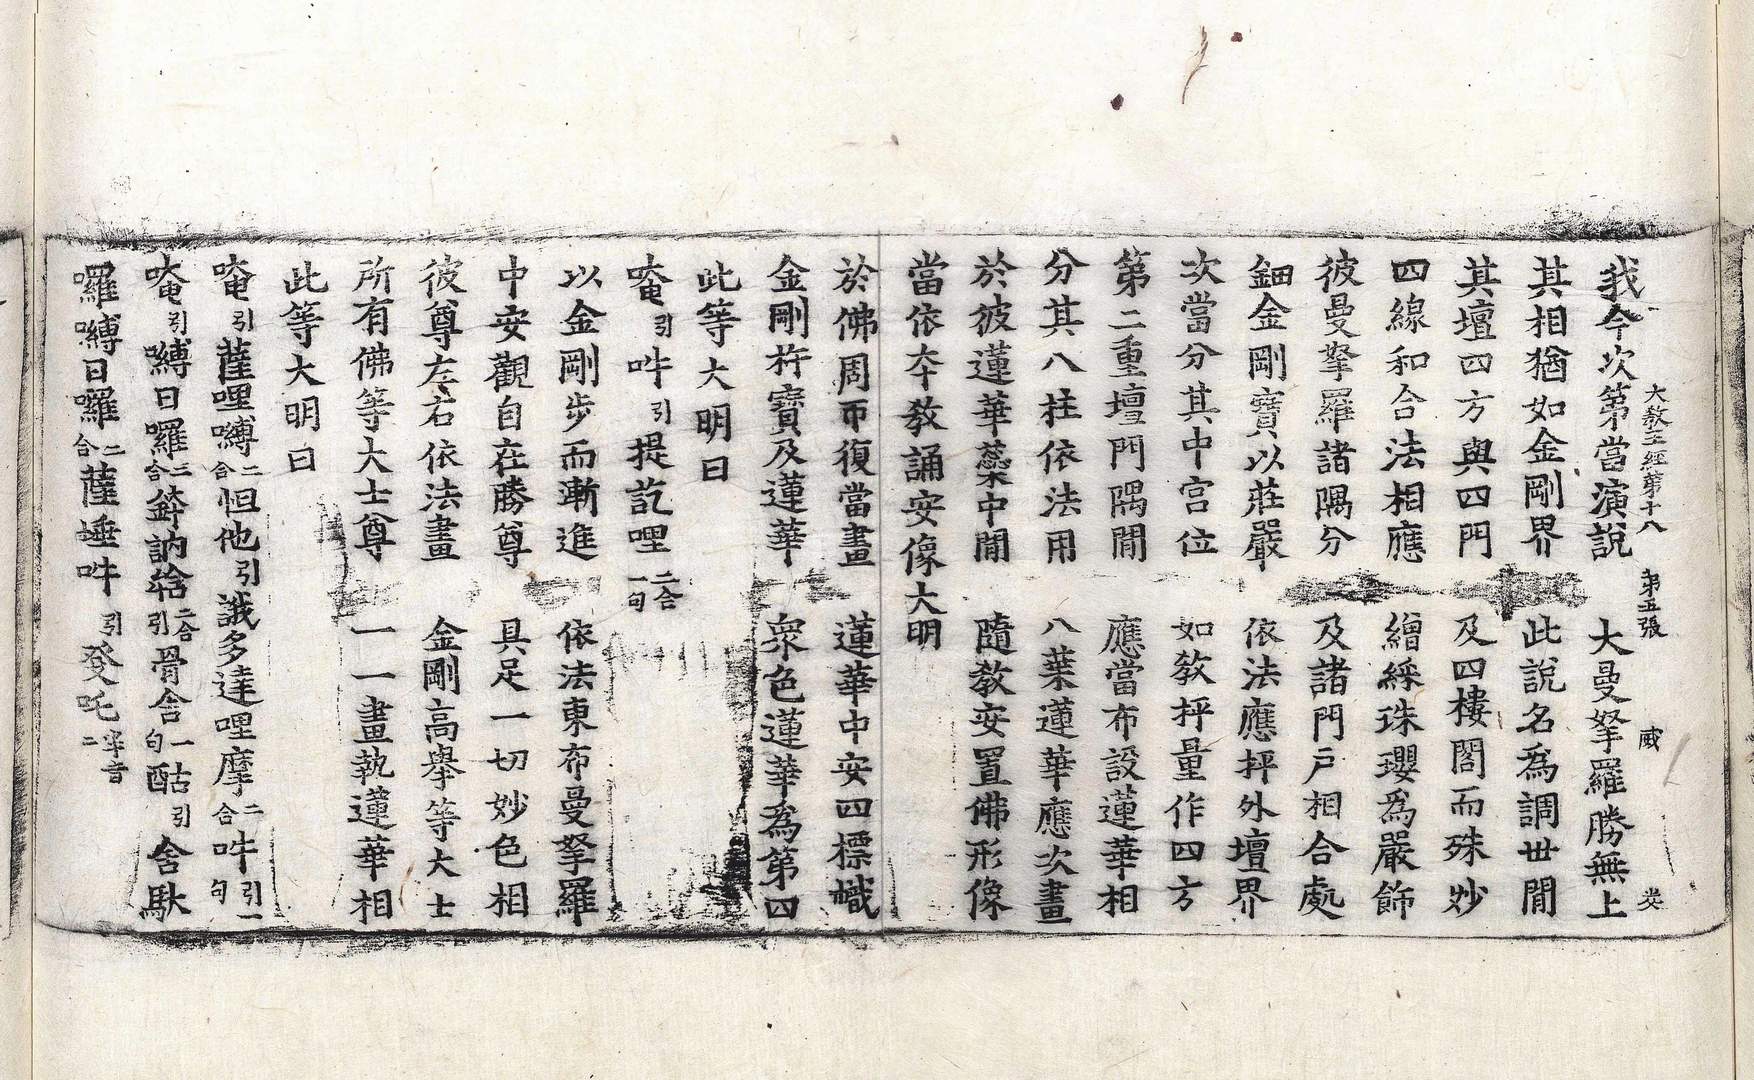 大敎王經第十八　第五張　咸　英
我今次第當演說　大曼拏羅勝無上
其相猶如金剛界　此說名為調世閒
其壇四方與四門　及四樓閣而殊妙
四線和合法相應　繒綵珠瓔為嚴飾
彼曼拏羅諸隅分　及諸門戶相合處
鈿金剛寶以莊嚴　依法應抨外壇界
次當分其中宮位　如敎抨量作四方
第二重壇門隅閒　應當布設蓮華相
分其八柱依法用　八葉蓮華應次畫
於彼蓮華蘂中閒　隨敎安置佛形像
當依本敎誦安像大明
於佛周帀復當畫　蓮華中安四幖幟
金剛杵寶及蓮華　衆色蓮華為第四
此等大明曰
唵引吽引提訖哩二合一句
以金剛步而漸進　依法東布曼拏羅
中安觀自在勝尊　具足一切妙色相
彼尊左右依法畫　金剛高舉等大士
所有佛等大士尊　一一畫執蓮華相
此等大明曰
唵引薩哩嚩二合怛他引誐多達哩摩二合吽引一句
唵引嚩日囉二合三訥佫二合引骨舍一句酤引舍馱
囉嚩日囉二合薩埵吽引癹吒半音二